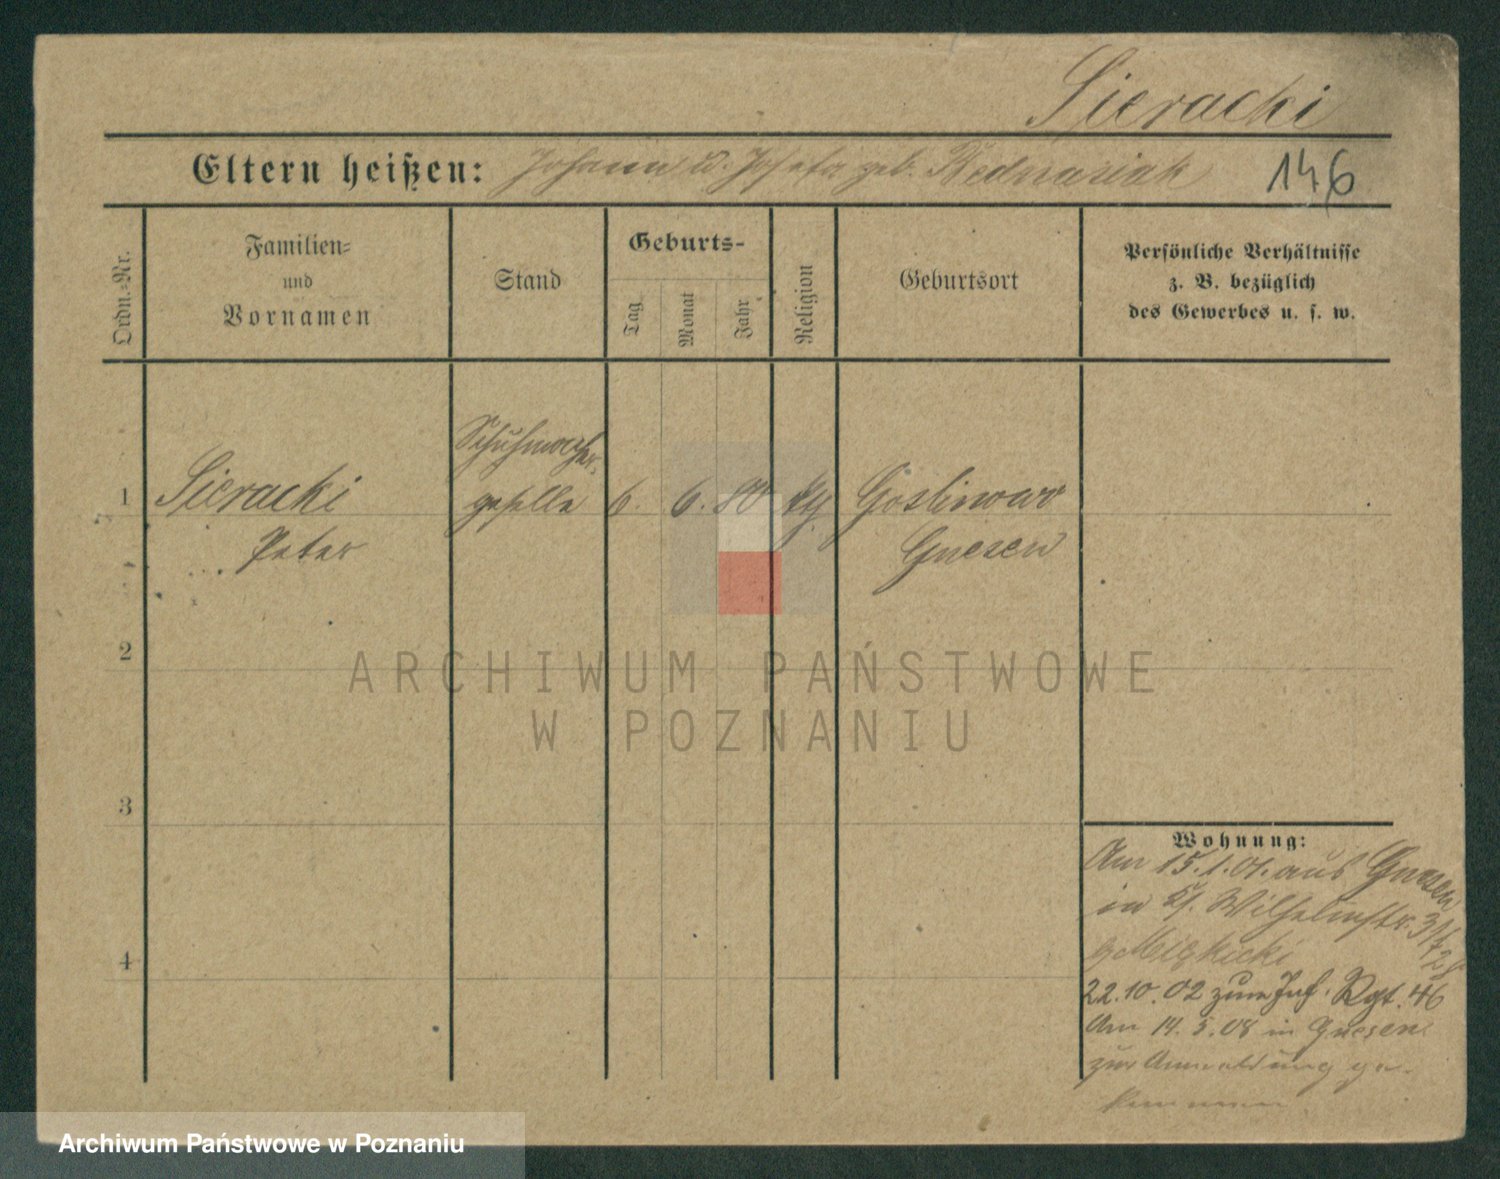 Sieracki
Eltern heißen: Johann u. Josefa geb. Bednariak
146
Ordn.-Nr.
Familien-
und
Vornamen
Stand
Geburts-
Tag
Monat
Jahr
Religion
Geburtsort
Persönliche Verhältnisse
z. B. bezüglich
des Gewerbes u. s. w.
1
Sieracki
Peter
Schuhmacher-
geselle
6.
6.
80
kth
Goslinowo
Gnesen
2
3
4
Wohnung:
Am 15.1.01. aus Gnesen
in Wilhelmstr. 31
22.10.02 zum Inf. Rgt. 46
Am 14.5.08 in Gnesen
zur Anmeldung ge-
kommen
ARCHIWUM PAŃSTWOWE
W POZNANIU
Archiwum Państwowe w Poznaniu